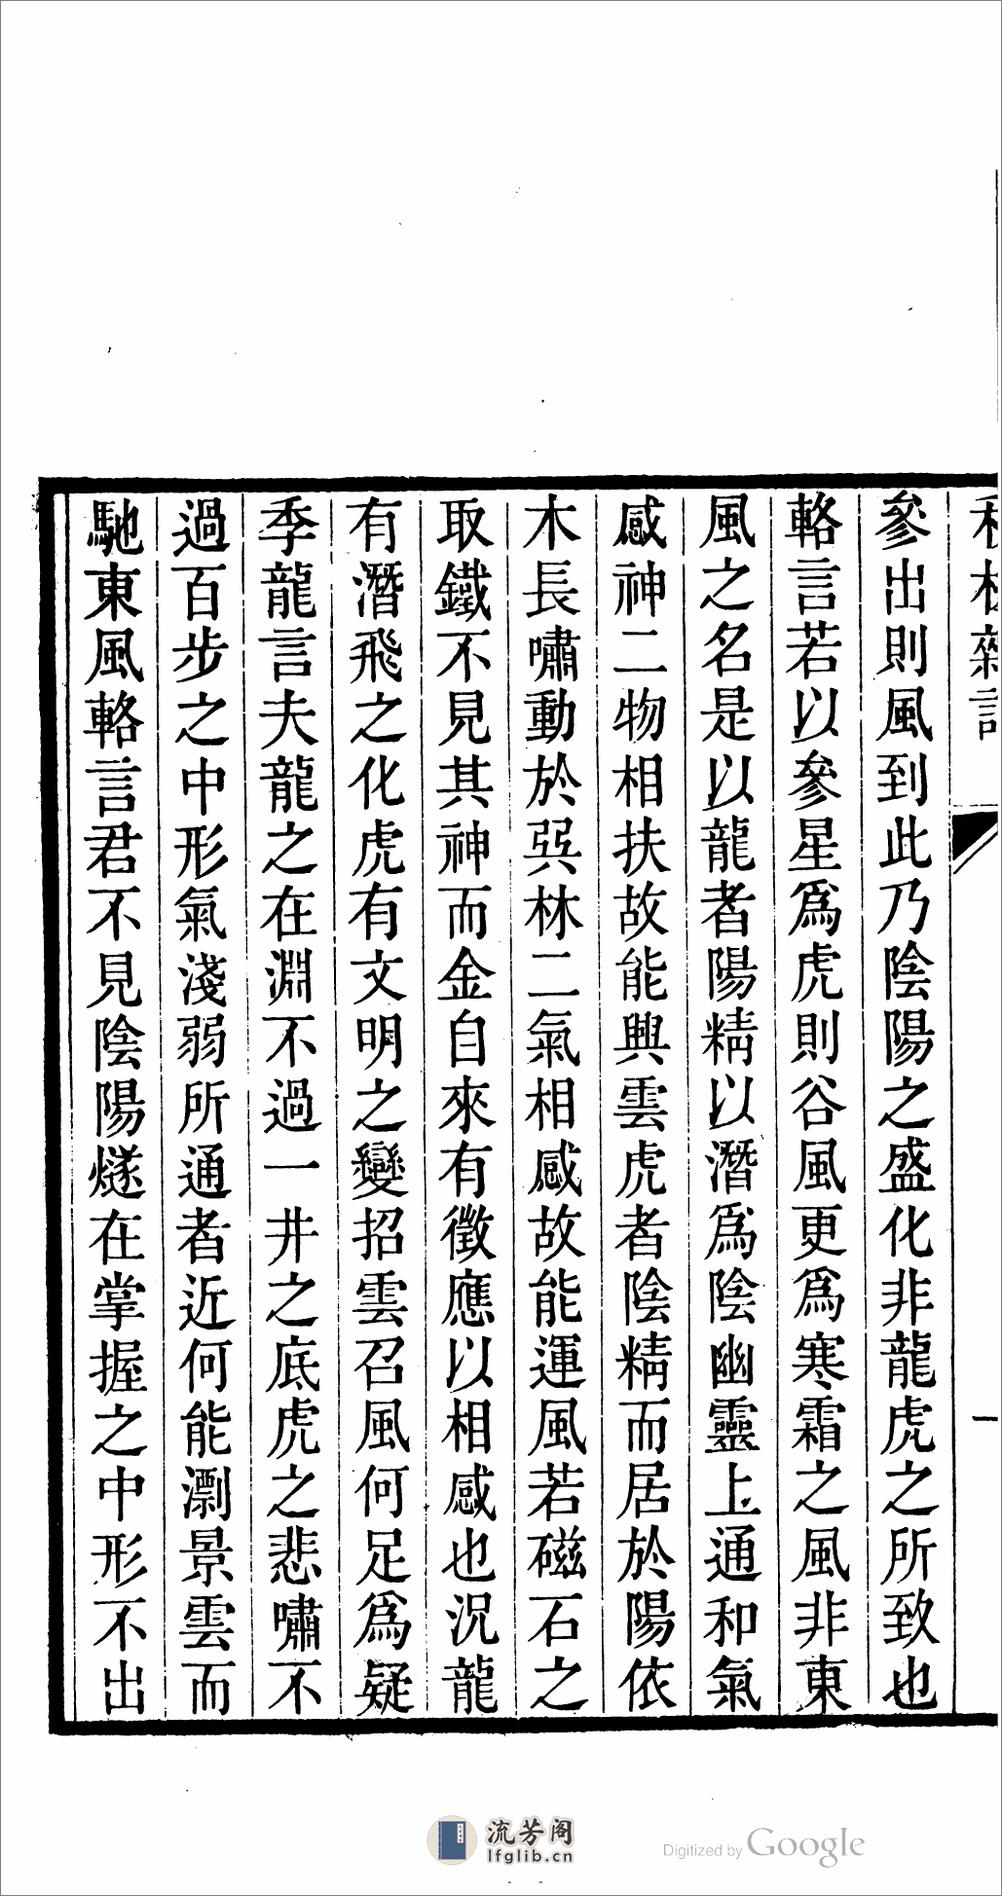 雜言
一
參出則風到此乃陰陽之盛化非龍虎之所致也
輅言若以參星爲虎則谷風更爲寒霜之風非東
風之名是以龍者陽精以潛爲陰幽靈上通和氣
感神二物相扶故能興雲虎者陰精而居於陽依
木長嘯動於巽林二氣相感故能運風若磁石之
取鐵不見其神而金自來有徵應以相感也況龍
有潛飛之化虎有文明之變招雲召風何足爲疑
季龍言夫龍之在淵不過一井之底虎之悲嘯不
過百步之中形氣淺弱所通者近何能劘景雲而
馳東風輅言君不見陰陽燧在掌握之中形不出
流芳阁
lfglib.cn
Digitized by Google